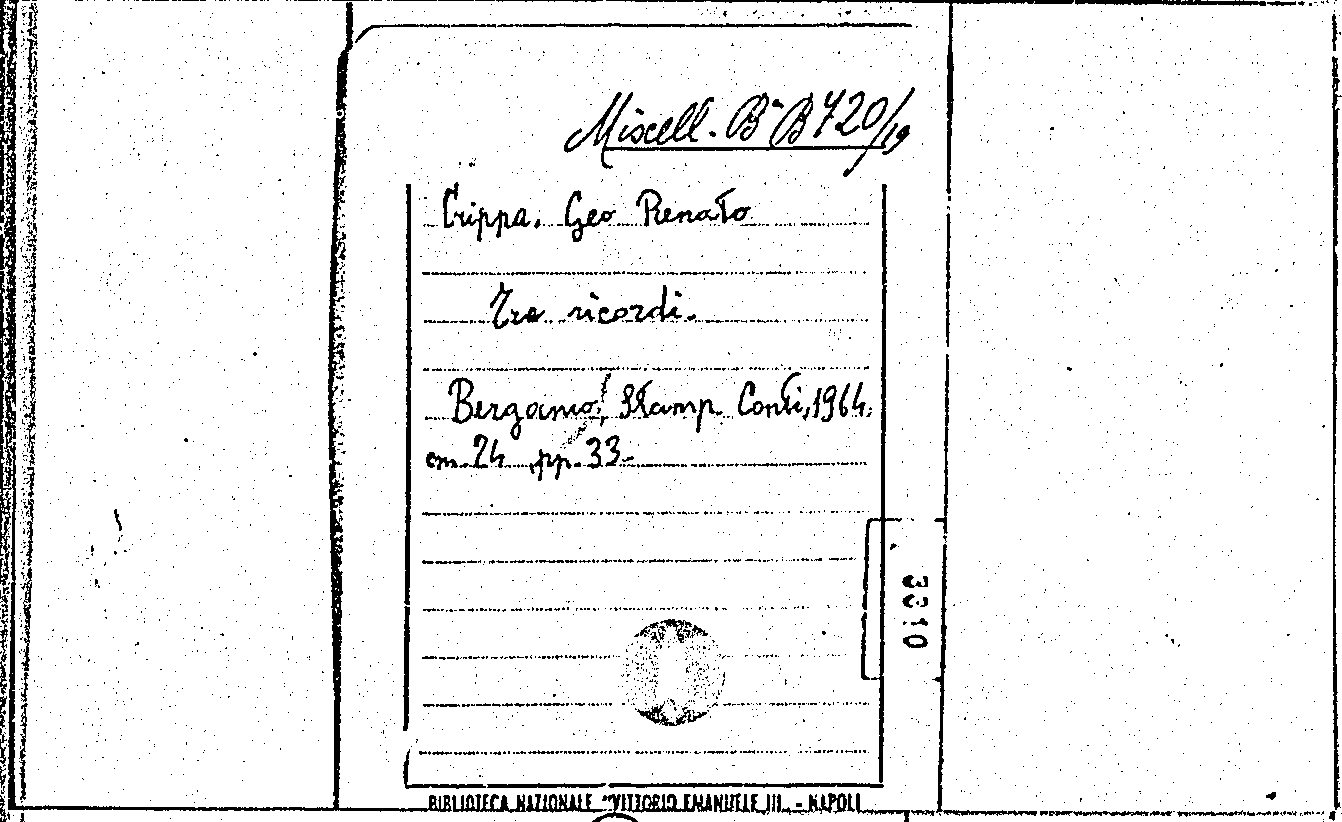 Miscell. Bª B 720/19
Crippa. Geo Renato
Tre ricordi.
Bergamo, Stamp. Conti, 1964.
cm. 24 pp. 33-
BIBLIOTECA NAZIONALE "VITTORIO EMANUELE III„ - NAPOLI